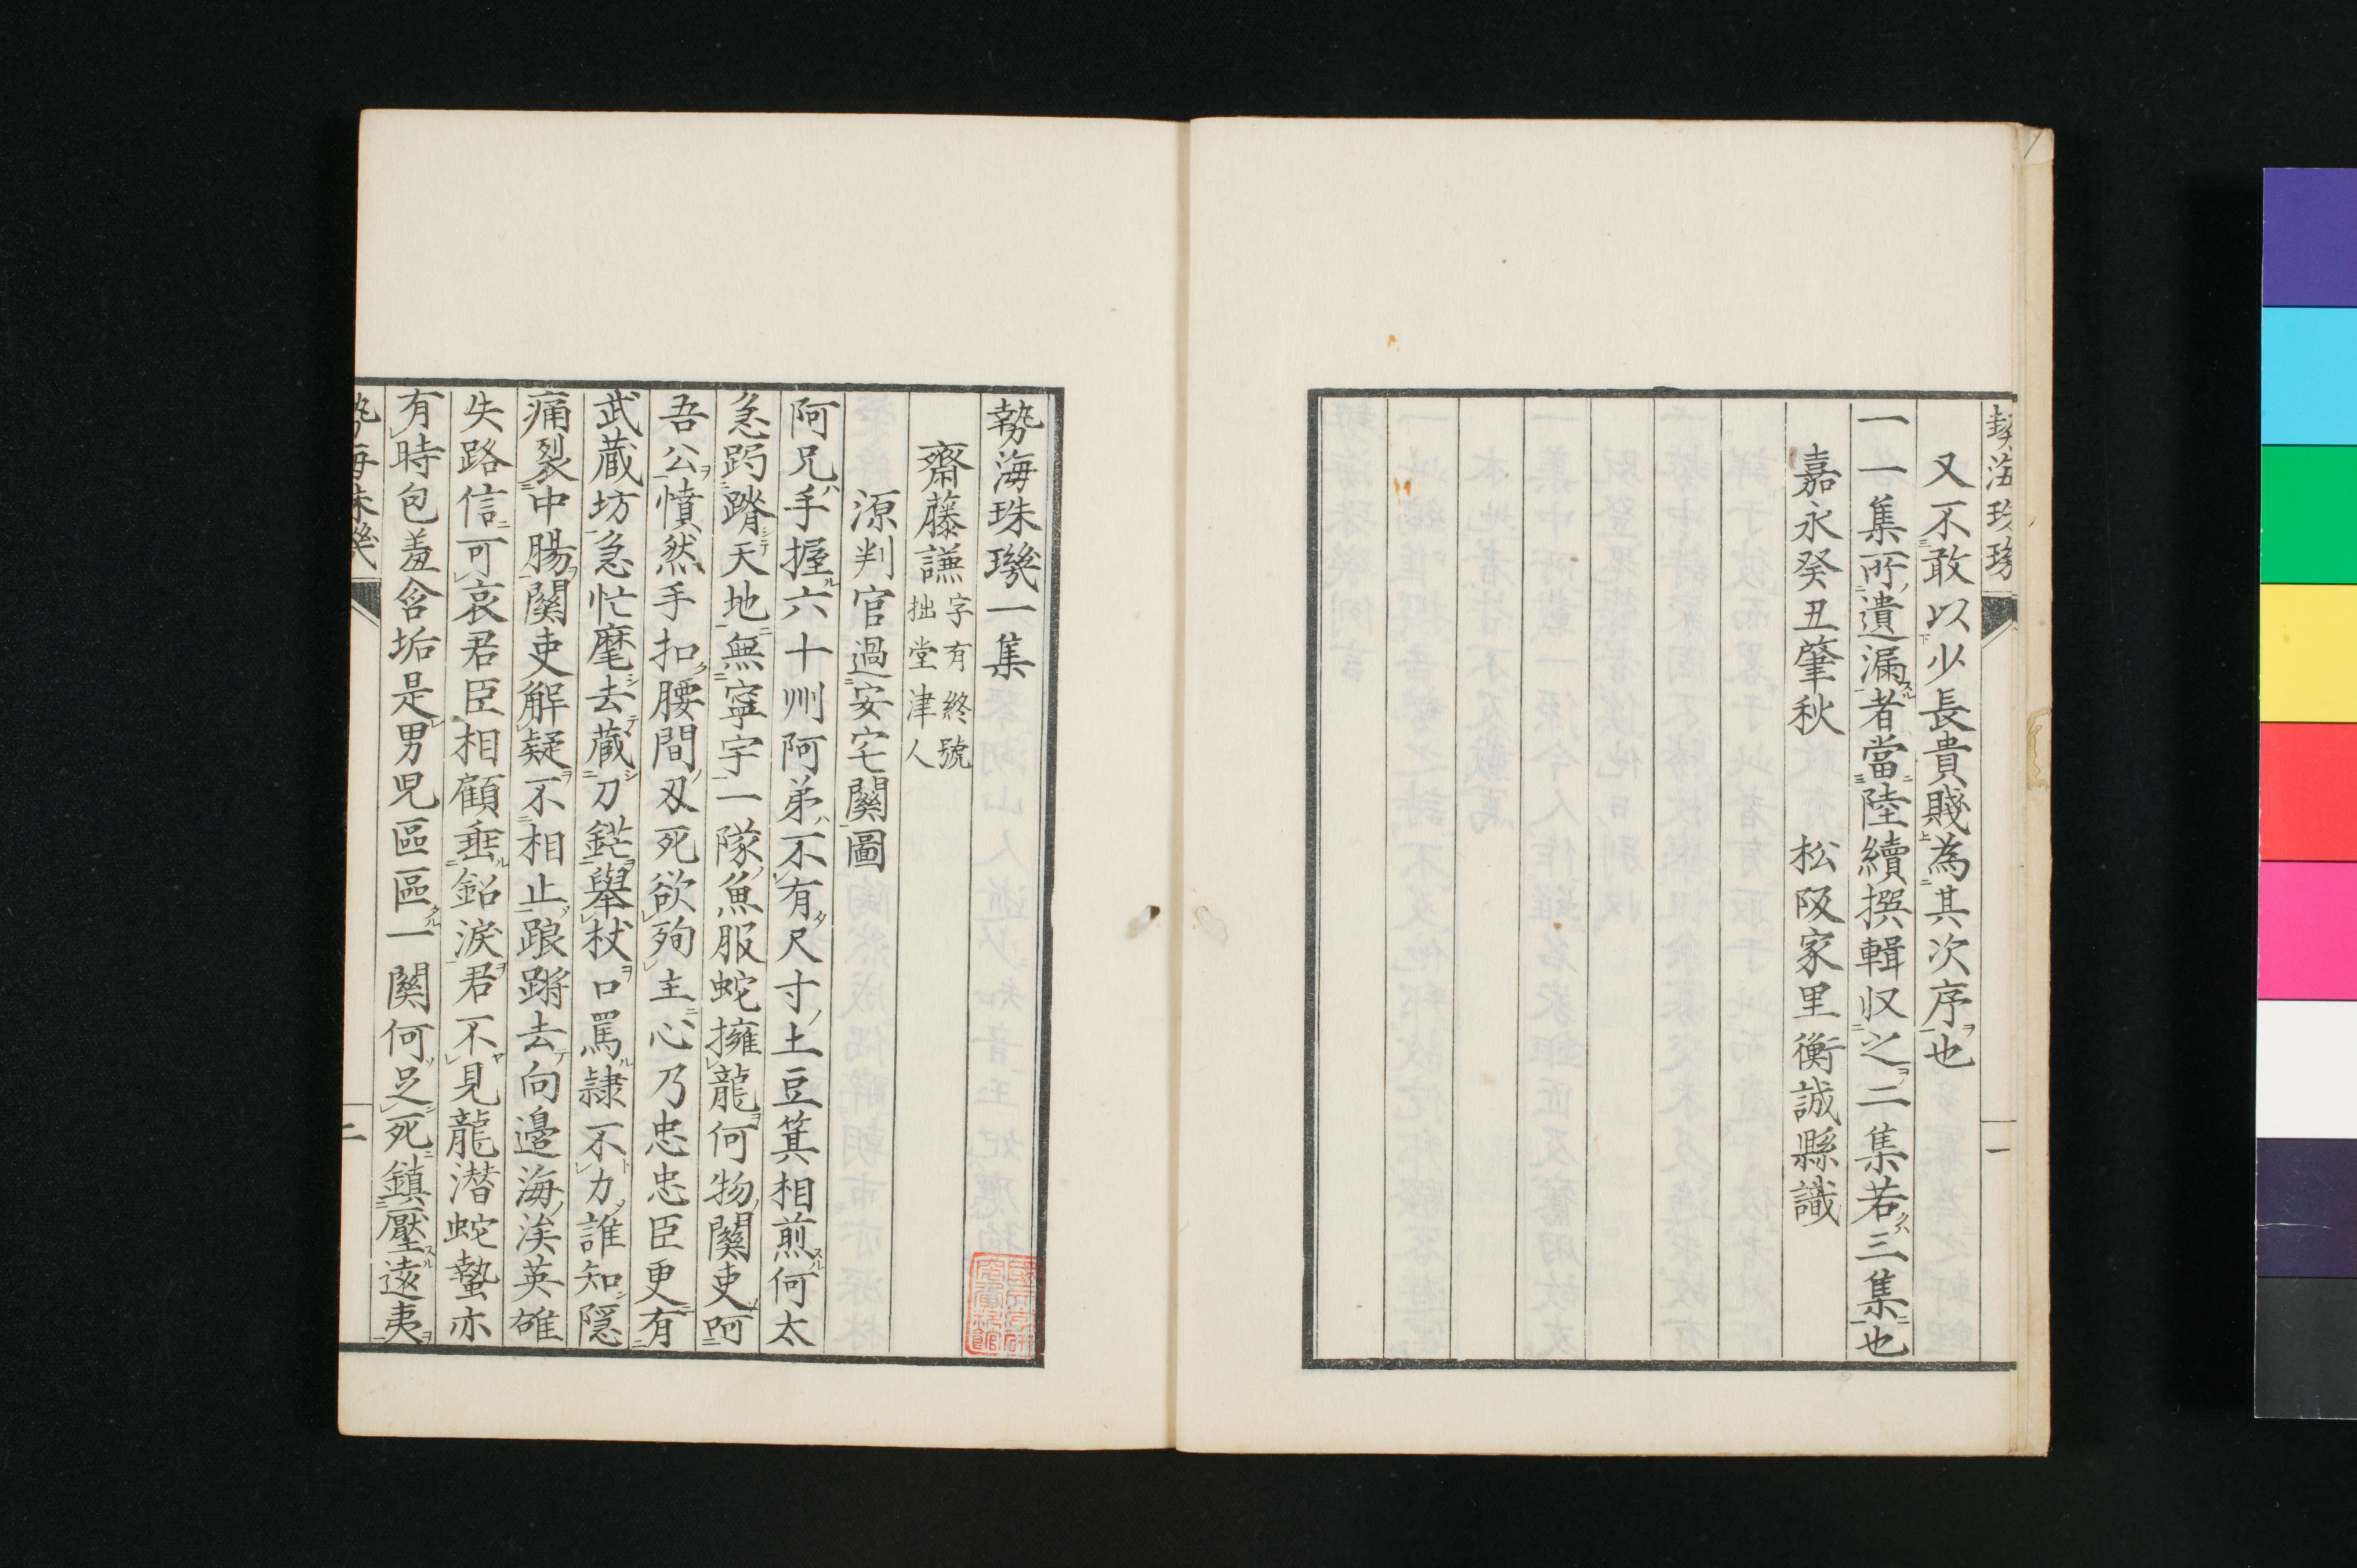 又不敢以少長貴賤為其次序也
一一集所遺漏者當陸續撰輯収之二集若三集也
嘉永癸丑肇秋　松阪家里衡誠縣識
一
勢海珠璣一集
齋藤謙字有終號拙堂津人
源判官過安宅關圖
阿兄手握六十州阿弟不有尺寸土豆箕相煎何太
急跼蹐天地無寧宇一隊魚服蛇擁龍何物關吏呵
吾公憤然手扣腰間刄死欲殉主心乃忠忠臣更有
武蔵坊急忙麾去蔵刀鋩舉杖口罵隷不力誰知隠
痛裂中腸關吏解疑不相止踉蹡去向邉海涘英雄
失路信可哀君臣相顧垂鉛涙君不見龍潜蛇蟄亦
有時包羞含垢是男児區區一關何足死鎮壓遠夷
勢海珠璣
二